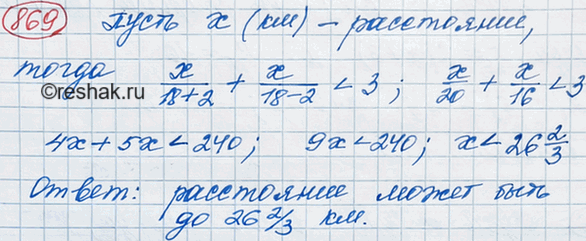 869 Пусть x (км) – расстояние,
©reshak.ru
тогда x/(18+2) + x/(18−2) < 3; x/20 + x/16 < 3
4x + 5x < 240; 9x < 240; x < 26 2/3
Ответ: расстояние может быть
до 26 2/3 км.